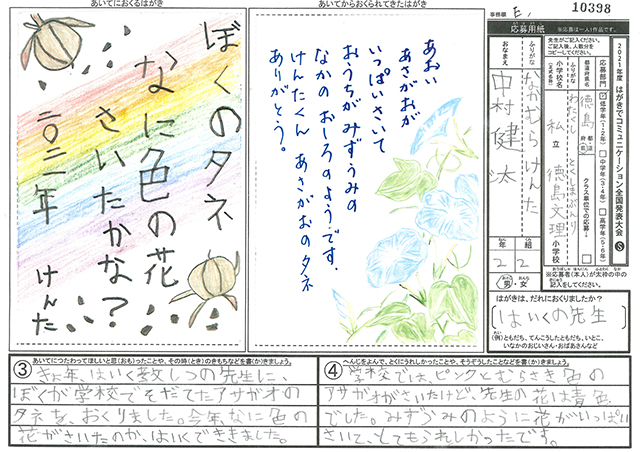 あいてにおくるはがき
ぼくのタネ
なに色の花
さいたかな?
二〇二一年 けんた
あいてからおくられてきたはがき
あおい
あさがおが
いっぱいさいて
おうちがみずうみの
なかの おしろのようです。
けんたくん あさがおのタネ
ありがとう。
事務欄
E,
10398
応募用紙
※応募は一人1作品です。
2021年度 はがきでコミュニケーション全国発表大会 S
先生がご記入ください。
ご記入後、人数分を
コピーしてください。
応募部門
低学年(1・2年)
中学年(3・4年)
高学年(5・6年)
クラス単位での応募→
都道府県名
徳島
都道
府県
ふりがな
小学校名
(正式名称)
わたくし とくしまぶんり
私 立 徳島文理 小学校
ふりがな
なかむら けんた
おなまえ
中村 健太
年 組
2 2
男・女
※応募者(本人)が太枠の中の
記入をしてください。
はがきは、だれにおくりましたか?
はいくの先生
(例)ともだち、てんこうしたともだち、いとこ、
いなかのおじいさん・おばあさんなど
③
あいてにつたわってほしいと思(おも)ったことや、その時(とき)のきもちなどを書(か)きましょう。
きょ年、はいく教しつの先生に、
ぼくが学校でそだてたアサガオの
タネを、おくりました。今年、なに色の
花がさいたのか、はいくできました。
④
へんじをよんで、とくにうれしかったことや、そうぞうしたことなどを書(か)きましょう。
学校では、ピンクとむらさき色の
アサガオがさいたけど、先生の花は青色
でした。みずうみのように花がいっぱい
さいて、とてもうれしかったです。